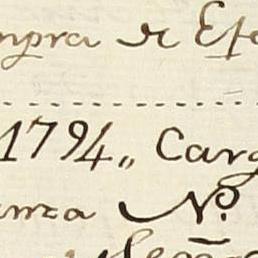 mpra de Efe
1794,, Carg
anza N.º